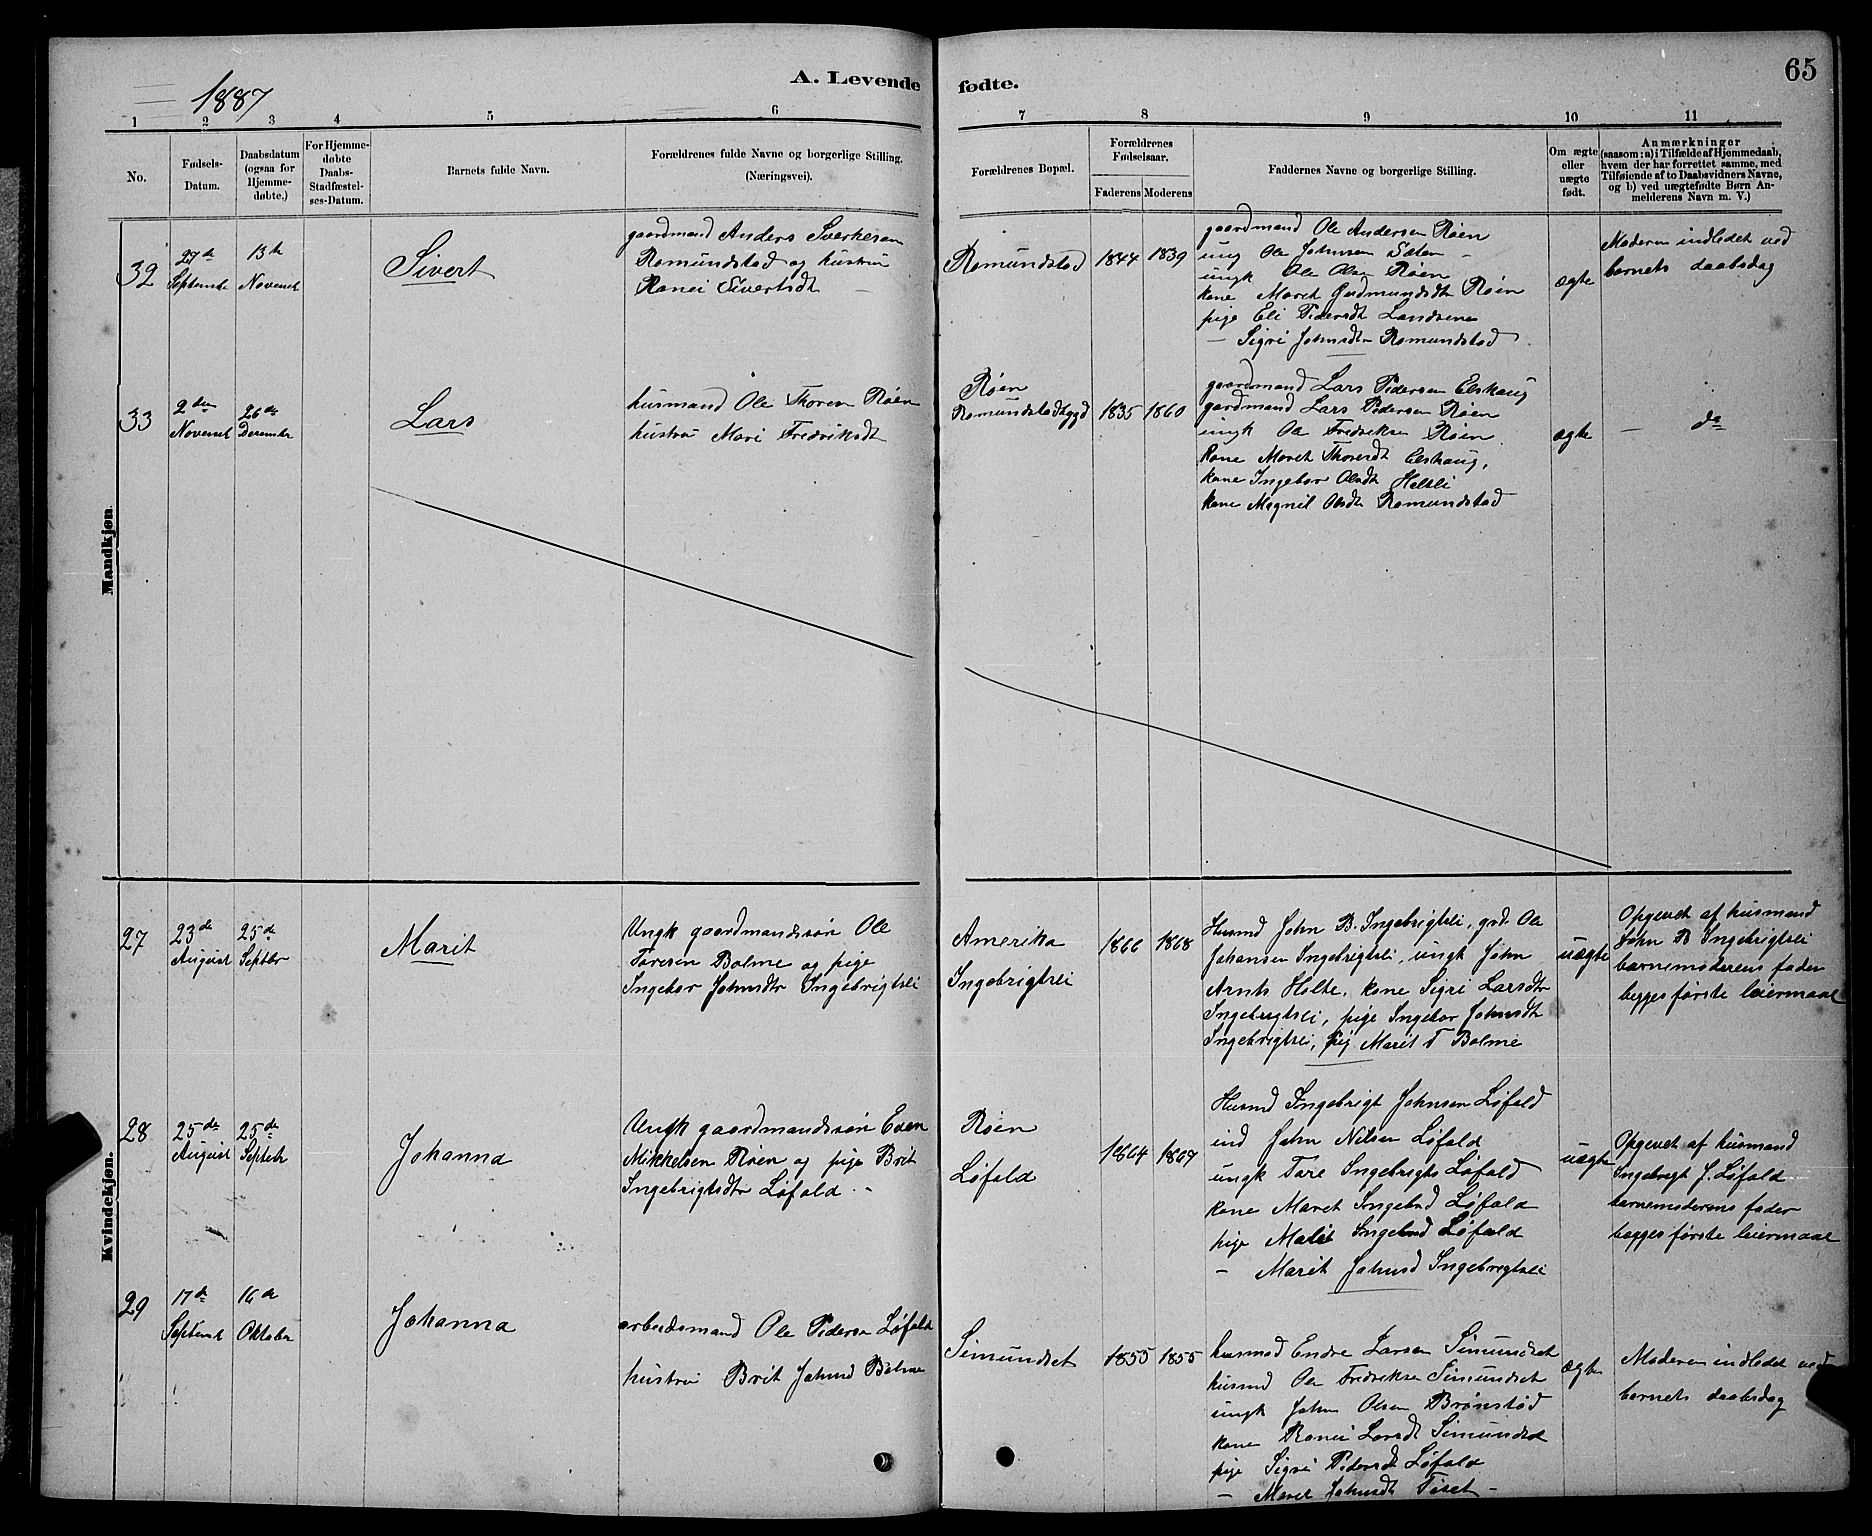 1887
A. Levende fødte.
65
1 2 3 4 5 6 7 8 9 10 11
No.
Fødsels-
Datum.
Daabsdatum
(ogsaa for
Hjemme-
døbte.)
For Hjemme-
døbte
Daabs-
Stadfæstel-
ses-Datum.
Barnets fulde Navn.
Forældrenes fulde Navne og borgerlige Stilling.
(Næringsvei).
Forældrenes Bopæl.
Forældrenes
Fødselsaar.
Faderens Moderens
Faddernes Navne og borgerlige Stilling.
Om ægte
eller
uægte
født.
Anmærkninger
(saasom: a) i Tilfælde af Hjemmedaab,
hvem der har forrettet samme, med
Tilføiende af to Daabsvidners Navne,
og b) ved uægtefødte Børn An-
melderens Navn m. V.)
Mandkjøn.
32
27de
Septembr
13de
Novembr
Sivert
gaardmand Anders Sverkesen
Romundstad og hustru
Ranei Sivertsdt
Romundstad
1844 1839
gaardmand Ole Andersen Røen
ung Ole Johnsen Sæten
ungk Ole Olsen Røen
kone Maret Gudmundsdt Røen
pige Eli Pedersdt Landsem
— Sigri Johnsdtr Romundstad
ægte
Moderen indledet ved
barnets daabsdag
33
2den
Novembr
26de
December
Lars
husmand Ole Thoresen Røen
hustru Mari Fredriksdt
Røen
Romundstadbygd
1835 1860
gaardmand Lars Pedersen Elshaug
gardmand Lars Pedersen Røen
ungk Ole Fredriksen Røen
kone Maret Thoresdt Elshaug,
kone Ingebor Olsdt Heltli
kone Magnil Olsdtr Romundstad
ægte
— do
Kvindekjøn.
27
23de
August
25de
Septbr
Marit
Ungk gaardmandssøn Ole
Toresen Bolme og pige
Ingebor Johnsdtr Ingebrigtsli
Amerika
Ingebrigtsli
1866 1868
Husmd John B. Ingebrigtsli, grd. Ole
Johansen Ingebrigtsli, ungk John
Arnts Holte, kone Sigri Larsdtr
Ingebrigtsli, pige Ingebor Johnsdt
Ingebrigtsli, pig Marit T Bolme
uægte
Opgevet af husmand
John B Ingebrigtsli
barnemoderens fader
begges første leiermaal
28
25de
August
25de
Septebr
Johanna
Ungk gaardmandssøn Even
Mikkelsen Røen og pige Brit
Ingebrigtsdtr Løfald
Røen
Løfald
1864 1867
Husmd Ingebrigt Johnsen Løfald
ind John Nilsen Løfald
ungk Tore Ingebrigts Løfald
kone Maret Ingebrd Løfald
pige Malit Ingebrd Løfald
— Marit Johnsd Ingebrigtsli
uægte
Opgevet af husmand
Ingebrigt J. Løfald
barnemoderens fader
begges første leiermaal
29
17de
Septembr
16de
Oktober
Johanna
arbeidsmand Ole Pedersen Løfald
hustru Brit Johnsd Bolme
Simundset
1855 1855
husmd Endre Larsen Simundset
husmd Ole Fredriksen Simundset
ungk John Olsen Brønstad
kone Ranei Larsdt Simundset
pige Sigri Pedersdt Løfald
— Maret Johnsdt Tiset
ægte
Moderen indledet ved
barnets daabsdag